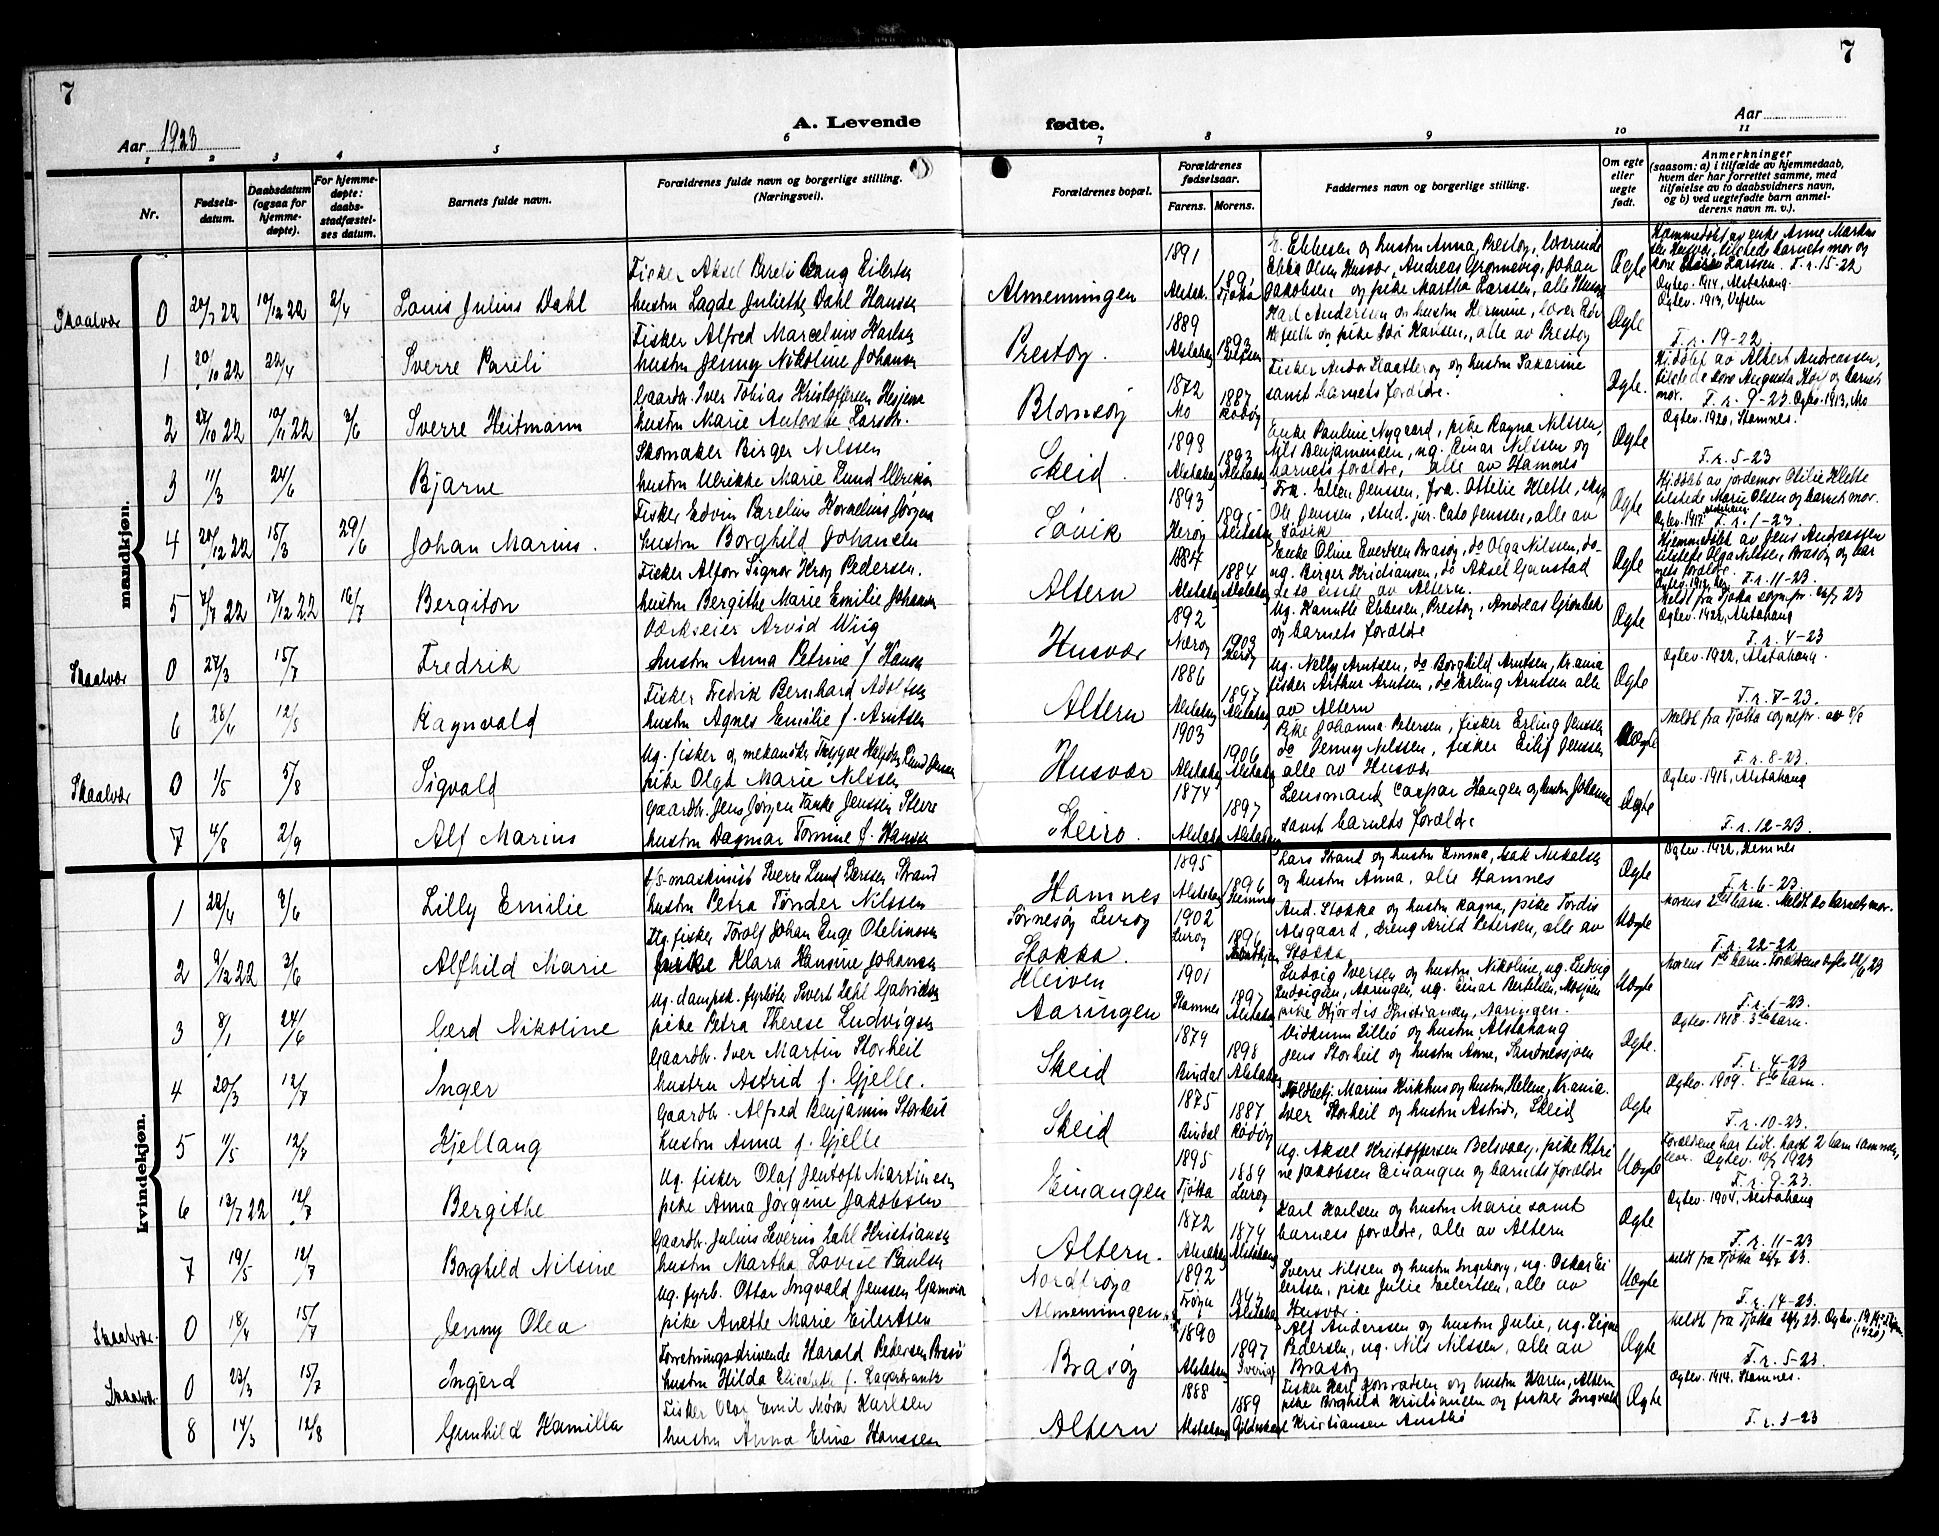 7
7
Aar 1923
A. Levende
fødte.
Aar
1
2
3
4
5
6
7
8
9
10
11
Nr.
Fødsels-
datum.
Daabsdatum
(ogsaa for
hjemme-
døpte).
For hjemme-
døpte:
daabs-
stadfæstel-
ses datum.
Barnets fulde navn.
Forældrenes fulde navn og borgerlige stilling.
(Næringsvei).
Forældrenes bopæl.
Forældrenes
fødselsaar.
Farens.
Morens.
Faddernes navn og borgerlige stilling.
Om egte
eller
uegte
født.
Anmerkninger
(saasom: a) i tilfælde av hjemmedaab,
hvem der har forrettet samme, med
tilføielse av to daabsvidners navn,
og b) ved uegtefødte barn anmel-
derens navn m. v.).
mandkjøn.
Skaalvær 0 20/7 22 10/12 22 2/4 Louis Julius Dahl
Fisker Aksel Pareli Bang Eilertsen
hustru Lagde Juliette Dahl Hansen
Almenningen
1891 Alstah. Tjøtta
E. Ebbesen og hustru Anna, Prestøy, lærerinde
Ebba Olsen Husvær, Andreas Grønnevig, Johan
Jakobsen og pike Martha Larssen, alle Husvær
Ægte
Hjemmedøbt av enke Anne Markus
sen Husvær, tilstede barnets mor og
Larssen. T.r. 15-22
Ægtev. 1914, Alstahaug.
1 20/10 22 22/4 Sverre Pareli
Fisker Alfred Marcelius Karlsen
hustru Jenny Nikoline Johansen
Prestøy.
1889 Alstahaug 1893
Karl Andersen og hustru Hermine, lærer
og pike Hansen, alle av Prestøy
Ægte
Ægtev. 1913, Vefsen
T.r. 19-22
2 27/10 22 19/11 22 3/6 Sverre Heitmann
Gaardbr. Iver Tobias Kristoffersen Hesjem
hustru Marie Antonette Larsdtr.
Blomsøy
1872 Mo 1887 Rødøy
Fisker Andor Kaatterøy og hustru Sakarine
samt barnets forældre.
Ægte.
Hj.døbt av Albert Andreassen,
tilstede Augusta og barnets
mor. T.r. 9-23 Ægtev. 1913, Mo
3 11/3 24/6 Bjarne
Skomaker Birger Nilssen
hustru Ulrikke Marie Lund Ulriksen
Skeid.
1898 Alstahaug 1893 Alstahaug
Enke Pauline Nygaard, pike Ragna Nilssen,
Nils Benjaminsen, ug. Einar Nilssen og
barnets forældre, alle av Hamnes
Ægte
Ægtev. 1920, Hamnes.
T.r. 5-23
4 20/12 22 18/3 29/6 Johan Marius.
Fisker Edvin Parelius Kornelius Jørgensen
hustru Borghild Johansen
Søvik
1893 Herøy 1895 Alstahaug
Frk. Ellen Jenssen, frk. Ottelie Klette, eksp.
Ole Jenssen, stud. jur. Cato Jenssen, alle av
Søvik
Ægte
Hj.døbt av jordemor Otilie Klette
tilstede Marie Olsen og barnets mor.
Ægtev. 1917 Alstahaug T.r. 1-23.
5 7/7 22 17/12 22 16/7 Bergiton
Fisker Alfon Signor Krog Pedersen.
hustru Bergithe Marie Emilie Johansen
Altern
1884 Alstahaug 1884 Alstahaug
Enke Oline Evertsen Brasøy, do Olga Nilssen, do-
ug. Birger Kristiansen, do Aksel Gaustad
de to sidste av Altern.
Ægte
Hjemmedøbt av Jens Andreassen
tilstede Olga Nilssen, Brasøy og bar
nets forældre.
Ægtev. 1912, Her. T.r. 11-23.
Skaalvær 0 27/3 15/7 Fredrik
Værkseier Arvid Wiig
hustru Anna Petrine f. Hansen
Husvær
1892 Nærøy 1903 Herøy
Ug. Kanutte Ebbesen, Prestøy, Andreas Grønbek
og barnets forældre
Ægte
Meldt fra Tjøtta sognepr. 26/7 23
Ægtev. 1922, Alstahaug
T.r. 4-23
6 28/4 12/5 Ragnvald
Fisker Fredrik Bernhard Adolfsen
hustru Agnes Emilie f. Arntsen
Altern
1886 Alstahaug 1897 Alstahaug
Ug. Nelly Arntsen, do Borghild Arntsen, Kr.ania
fisker Arthur Arntsen, do Erling Arntsen alle
av Altern
Ægte
Ægtev. 1922, Alstahaug.
T.r. 7-23.
Skaalvær 0 1/5 5/8 Sigvald
Ug. fisker og mekaniker Trygve Heyden Lund Jensen
pike Olga Marie Nilssen
Husvær
1903 Alstahaug 1906 Alstahaug
Pike Johanna Petersen, fisker Erling Jenssen
do Jenny Nilssen, fisker Eilif Jenssen
alle av Husvær
Uægte
Meldt fra Tjøtta sognepr. av 8/8
T.r. 8-23.
7 4/8 2/9 Alf Marius
Gaardbr. Jens Jørgen Tanke Jenssen Sture
hustru Dagmar Tomine f. Hansen
Skeiro.
1874 Alstahaug 1897 Alstahaug
Lensmand Caspar Haugen og hustru Johanne
samt barnets forældre
Ægte
Ægtev. 1918, Alstahaug
T.r. 12-23.
kvindekjøn.
1 22/4 3/6 Lilly Emilie
D/S-maskinist Sverre Lund Larssen Strand
hustru Petra Tønder Nilssen
Hamnes
1895 Alstahaug 1896 Hemnes
Lars Strand og hustru Emma, Isak Mikalsen
og hustru Anna, alle Hamnes
Ægte
Ægtev. 1922, Hemnes
T.r. 6-23.
2 9/12 22 3/6 Alfhild Marie
Ug. fisker Torolf Johan Enge Olelinssen
pike Klara Hansine Johansen
Tørnesøy Lurøy
Stokka.
1902 Lurøy 1896
And. Stokka og hustru Ragna, pike Tordis
Alsgaard, dreng Arild Petersen, alle av
Stokka
Uægte
Morens 2det barn. Meldt av barnets mor.
T.r. 22-22
3 8/1 24/6 Gerd Nikoline
Ug. dampsk. fyrbøter Sivert Dahl Gabrielsen
pike Petra Therese Ludvigsen
Kleiven
Aaringen
1901 Stamnes 1897 Alstahaug
Ludvig Iversen og hustru Nikoline, ug. Ludvig
Ludvigsen, Aaringen, ug. Einar Bertelsen, Mosjøen
pike Hjørdis Kristiansen, Aaringen.
Uægte
Morens 1ste barn. Forældrene ægtev. 22/6 23
T.r. 1-23.
4 20/3 12/8 Inger
Gaardbr. Iver Martin Storheil
hustru Astrid f. Gjelle.
Skeid
1879 Bindal 1898 Alstahaug
Vidkunn Lillø og hustru Alstahaug
Jens Storheil og hustru Anne, Sandnessjøen
Ægte.
Ægtev. 1918. 3die barn.
T.r. 4-23
5 11/5 12/8 Kjellaug
Gaardbr. Alfred Benjamin Storheil
hustru Anna f. Gjelle
Skeid
1875 Bindal 1887 Rødøy
Toldbetj. Marius Kirkhus og hustru Helene, Kr.ania.
Iver Storheil og hustru Astrid, Skeid
Ægte
Ægtev. 1909. 8de barn.
T.r. 10-23.
6 13/7 22 12/7 Bergithe
Ug. fisker Olaf Jentoft Martinsen
pike Anna Jørgine Jakobsen
Einangen
1895 Tjøtta 1889 Lurøy
Ug. Aksel Kristoffersen Belsvaag, pike Petri
ne Jakobsen Einangen og barnets forældre
Uægte
Forældrene har tidl. havt 2 barn sammen,
Ægtev. 10/7 1923
T.r. 9-23.
7 19/5 12/7 Borghild Nilsine
Gaardbr. Julius Severin Dahl Kristiansen
hustru Martha Lovise Paulsen
Altern.
1872 Alstahaug 1879 Alstahaug
Karl Karlsen og hustru Marie samt
barnets forældre, alle av Altern
Ægte
Ægtev. 1904, Alstahaug
T.r. 11-23
Skaalvær. 0 18/4 15/7 Jenny Olea
Ug. fyrb. Ottar Ingvald Jenssen Gamvik
pike Anethe Marie Eilertsen
Nordfrøya
Almenningen
1892 Frøya Alstahaug
Sverre Nilssen og hustru Ingeborg, ug. Oskar Ei
lertsen, pike Julie Eilertsen, alle av
Husvær.
Uægte
Meldt fra Tjøtta 26/7 23.
T.r. 14-23.
Skaalvær 0 23/3 15/7 Ingjerd
Forretningsdrivende Harald Pedersen Brasø
hustru Hilda Elisabeth f. Lagerkrantz
Brasøy
1890 Alstahaug 1897 Sverige
Alf Anderssen og hustru Julie, ug. Signe
Pedersen, ug. Nils Nilssen, alle av
Brasøy
Ægte
Meldt fra Tjøtta 26/7 23. Ægtev. 1919
(1920)
T.r. 5-23.
8 14/3 12/8 Gunhild Kamilla
Fisker Olav Emil Mørk Karlsen
hustru Anna Eline Hanssen
Altern
1888 Alstahaug 1889 Gildeskaal
Fisker Karl Konradsen og hustru Karen, Altern
pike Borghild Kristiansen og fisker Ingvald
Kristiansen Austbø
Ægte
Ægtev. 1914. Hamnes.
T.r. 3-23